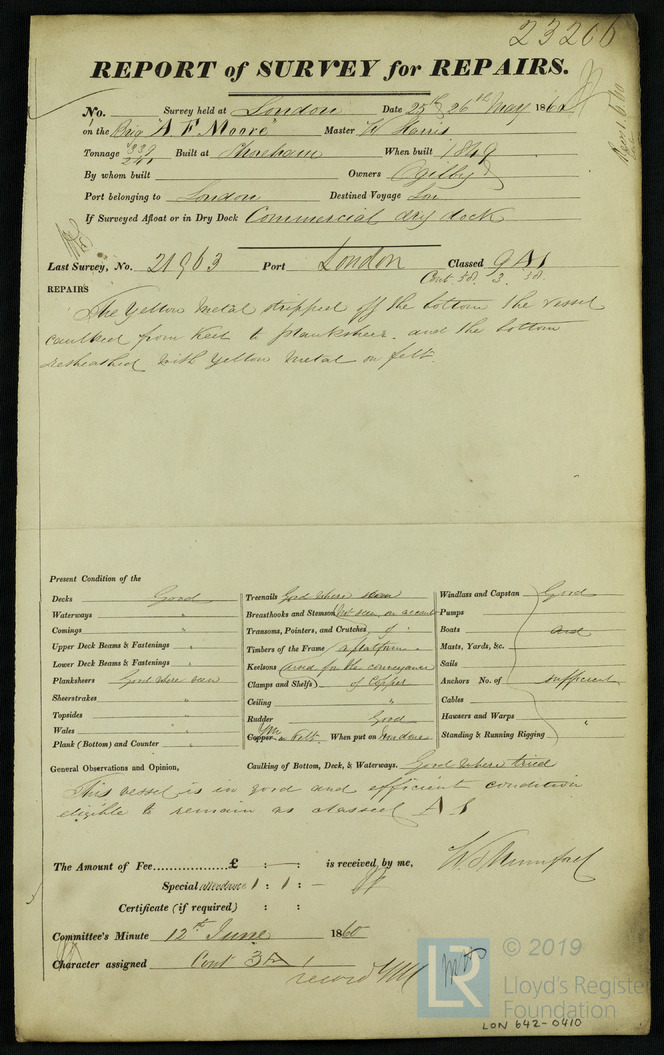 23206
REPORT of SURVEY for REPAIRS.
No. Survey held at London Date 25th & 26th May 1860
on the Brig "A. F. Moore" Master W Harris
Tonnage 337 241 Built at Shoreham When built 1849
By whom built Owners Ogilby
Port belonging to London Destined Voyage Lon
If Surveyed Afloat or in Dry Dock Commercial dry dock
Last Survey, No. 21963 Port London Classed 9 A1
Cont 58. 3. 58.
REPAIRS
The Yellow Metal stripped off the bottom the vessel
caulked from Keel to planksheer. and the bottom
resheathed with Yellow Metal on felt.
Present Condition of the
Decks Good
Waterways "
Comings "
Upper Deck Beams & Fastenings "
Lower Deck Beams & Fastenings "
Planksheers Good where seen
Sheerstrakes "
Topsides "
Wales "
Plank (Bottom) and Counter "
Treenails Good where seen
Breasthooks and Stemson Not seen on account
Transoms, Pointers, and Crutches of
Timbers of the Frame a platform
Keelsons (used for the conveyance
Clamps and Shelfs) of Copper
Ceiling "
Rudder Good
Copper YM on Felt. When put on London
Windlass and Capstan Good
Pumps
Boats and
Masts, Yards, &c.
Sails
Anchors No. of sufficient
Cables
Hawsers and Warps "
Standing & Running Rigging
General Observations and Opinion, Caulking of Bottom, Deck, & Waterways. Good where tried
This vessel is in good and efficient condition
eligible to remain as classed A 1
The Amount of Fee................£ : — : is received by me,
Special attendance 1 : 1 : —
Certificate (if required) : :
Committee's Minute 12th June 1860
Character assigned Cont 3A
record
LR
© 2019
Lloyd's Register
Foundation
LON 642-0410